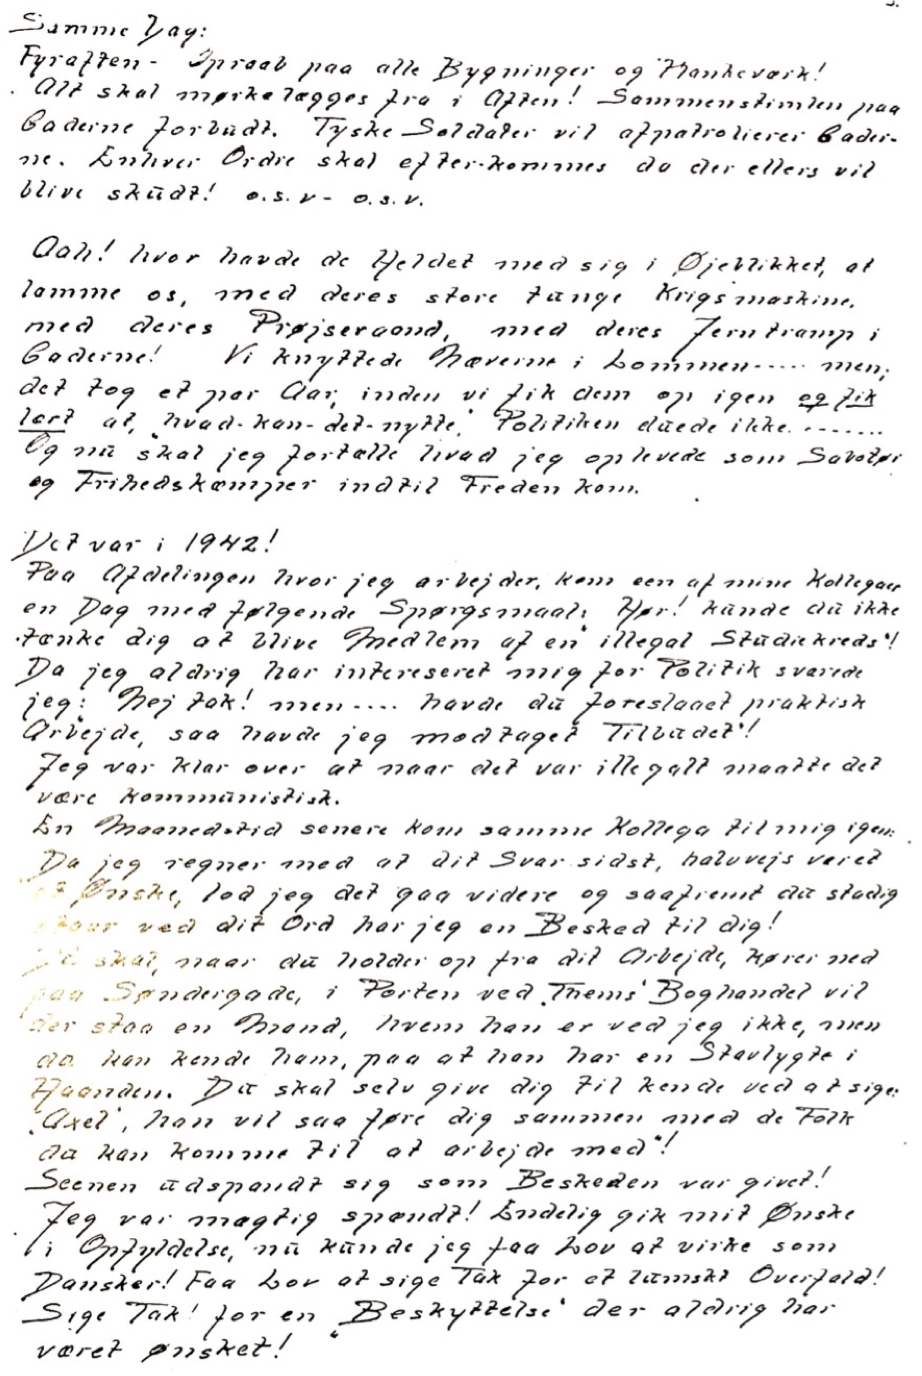 3.
Samme Dag:
Fyraften - Opraab paa alle Bygninger og Plankeværk!
Alt skal mørkelægges fra i Aften! Sammenstimlen paa
Gaderne forbudt. Tyske Soldater vil afpatrolierer Gader-
ne. Enhver Ordre skal efter-kommes da der ellers vil
blive skudt! o.s.v - o.s.v.
Aah! hvor havde de Heldet med sig i Øjeblikket, at
lamme os, med deres store tunge Krigsmaskine,
med deres Prøjseraand, med deres Jerntramp i
Gaderne! Vi knyttede Næverne i Lommen----- men,
det tog et par Aar, inden vi fik dem op igen og fik
lært at, "hvad-kan-det-nytte" Politiken duede ikke.-------
Og nu skal jeg fortælle hvad jeg oplevede som Sabotør
og Frihedskæmper indtil Freden kom.
Det var i 1942!
Paa Afdelingen hvor jeg arbejder, kom een af mine Kollegaer
en Dag med følgende Spørgsmaal: Hør! kunde du ikke
tænke dig at blive Medlem af en illegal Studiekreds"!
Da jeg aldrig har intereseret mig for Politik svarede
jeg: "Nej tak! men---- havde du foreslaaet praktisk
Arbejde, saa havde jeg modtaget Tilbudet"!
Jeg var klar over at naar det var illegalt maatte det
være kommunistisk.
En Maanedstid senere kom samme Kollega til mig igen:
"Da jeg regner med at dit Svar sidst, halvvejs været
et Ønske, lod jeg det gaa videre og saafremt du stadig
staar ved dit Ord har jeg en Besked til dig!
Du skal, naar du holder op fra dit Arbejde, kører ned
paa Søndergade, i Porten ved "Thems" Boghandel vil
der staa en Mand, hvem han er ved jeg ikke, men
du kan kende ham, paa at han har en Stavlygte i
Haanden. Du skal selv give dig til kende ved at sige:
"Axel", han vil saa føre dig sammen med de Folk
du kan komme til at arbejde med"!
Scenen udspandt sig som Beskeden var givet!
Jeg var mægtig spændt! Endelig gik mit Ønske
i Opfyldelse, nu kunde jeg faa Lov at virke som
Dansker! Faa Lov at sige Tak for et lumskt Overfald!
Sige Tak! for en "Beskyttelse" der aldrig har
været ønsket!